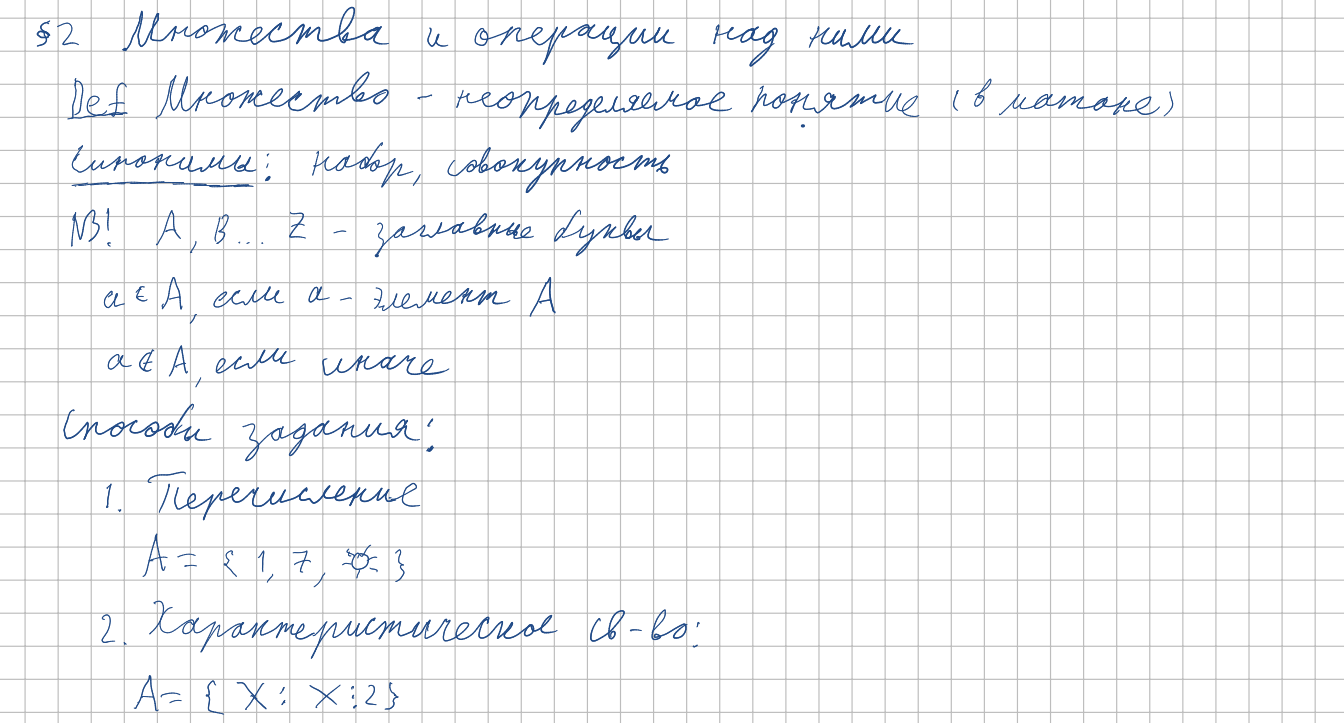 §2 Множества и операции над ними
Def Множество - неопределяемое понятие (в матане)
Синонимы: набор, совокупность
NB! A, B... Z - заглавные буквы
a ∈ A, если a - элемент A
a ∉ A, если иначе
Способы задания:
1. Перечисление
A = { 1, 7, ☼ }
2. Характеристическое св-во:
A = { X : X ⋮ 2 }